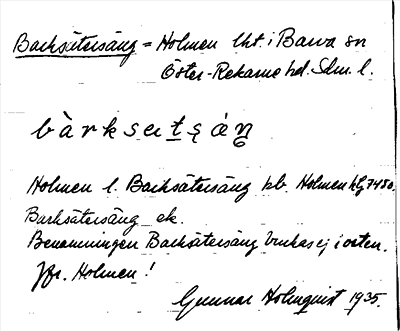 Barksätersäng = Holmen lht. i Barva sn
Öster-Rekarne hd. Sdm. l.
bàrksętşáŋ
Holmen l. Barksätersäng kb. Holmen hfl 7450.
Barksätersäng ek.
Benämningen Barksätersäng brukas ej i orten.
Jfr. Holmen!
Gunnar Holmquist 1935.